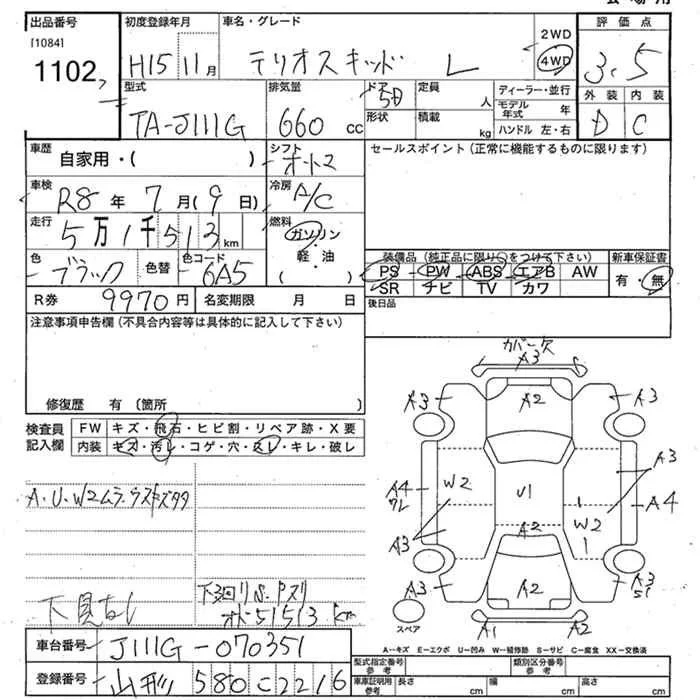 出品番号 初度登録年月 車名・グレード 評価点
[1084] 2WD
1102 H15 11月 テリオスキッド L 4WD 3.5
型式 排気量 ドア 定員 人 ディーラー・並行 外装 内装
TA-J111G 660 cc 5D 形状 積載 kg モデル年式 年 D C
ハンドル 左・右
車歴 自家用・( ) シフト オートマ セールスポイント(正常に機能するものに限ります)
車検 R8年 7月(9日) 冷房 A/C
走行 5万1千513km 燃料 ガソリン・軽・油 ( )
装備品(純正品に限り○をつけて下さい) 新車保証書
色 ブラック 色替 色コード 6A5 PS PW ABS エアB AW 有・無
SR ナビ TV カワ
R券 9970円 名変期限 月 日 後日品
注意事項申告欄(不具合内容等は具体的に記入して下さい)
カバー欠
A3
A3 A2 A3
修復歴 有 (箇所 )
検査員 FW キズ・飛石・ヒビ割・リペア跡・X要
記入欄 内装 キズ・汚レ・コゲ・穴・スレ・キレ・破レ
A3
A4 W2 U1 W2 A4
ワレ
A・U・W2ムラ・ウスキズタタ
A2
A3
下廻りS・Pスリ A3 A2 A3
S1
下見なし オド51513km
スペア A1 A2
車台番号 J111G-070351 A—キズ E—エクボ U—凹み W—補修跡 S—サビ C—腐食 XX—交換済
型式指定番号 参考 類別区分番号 参考
登録番号 山形 580 C 2216 車庫証明用 参考 長さ 幅 高さ